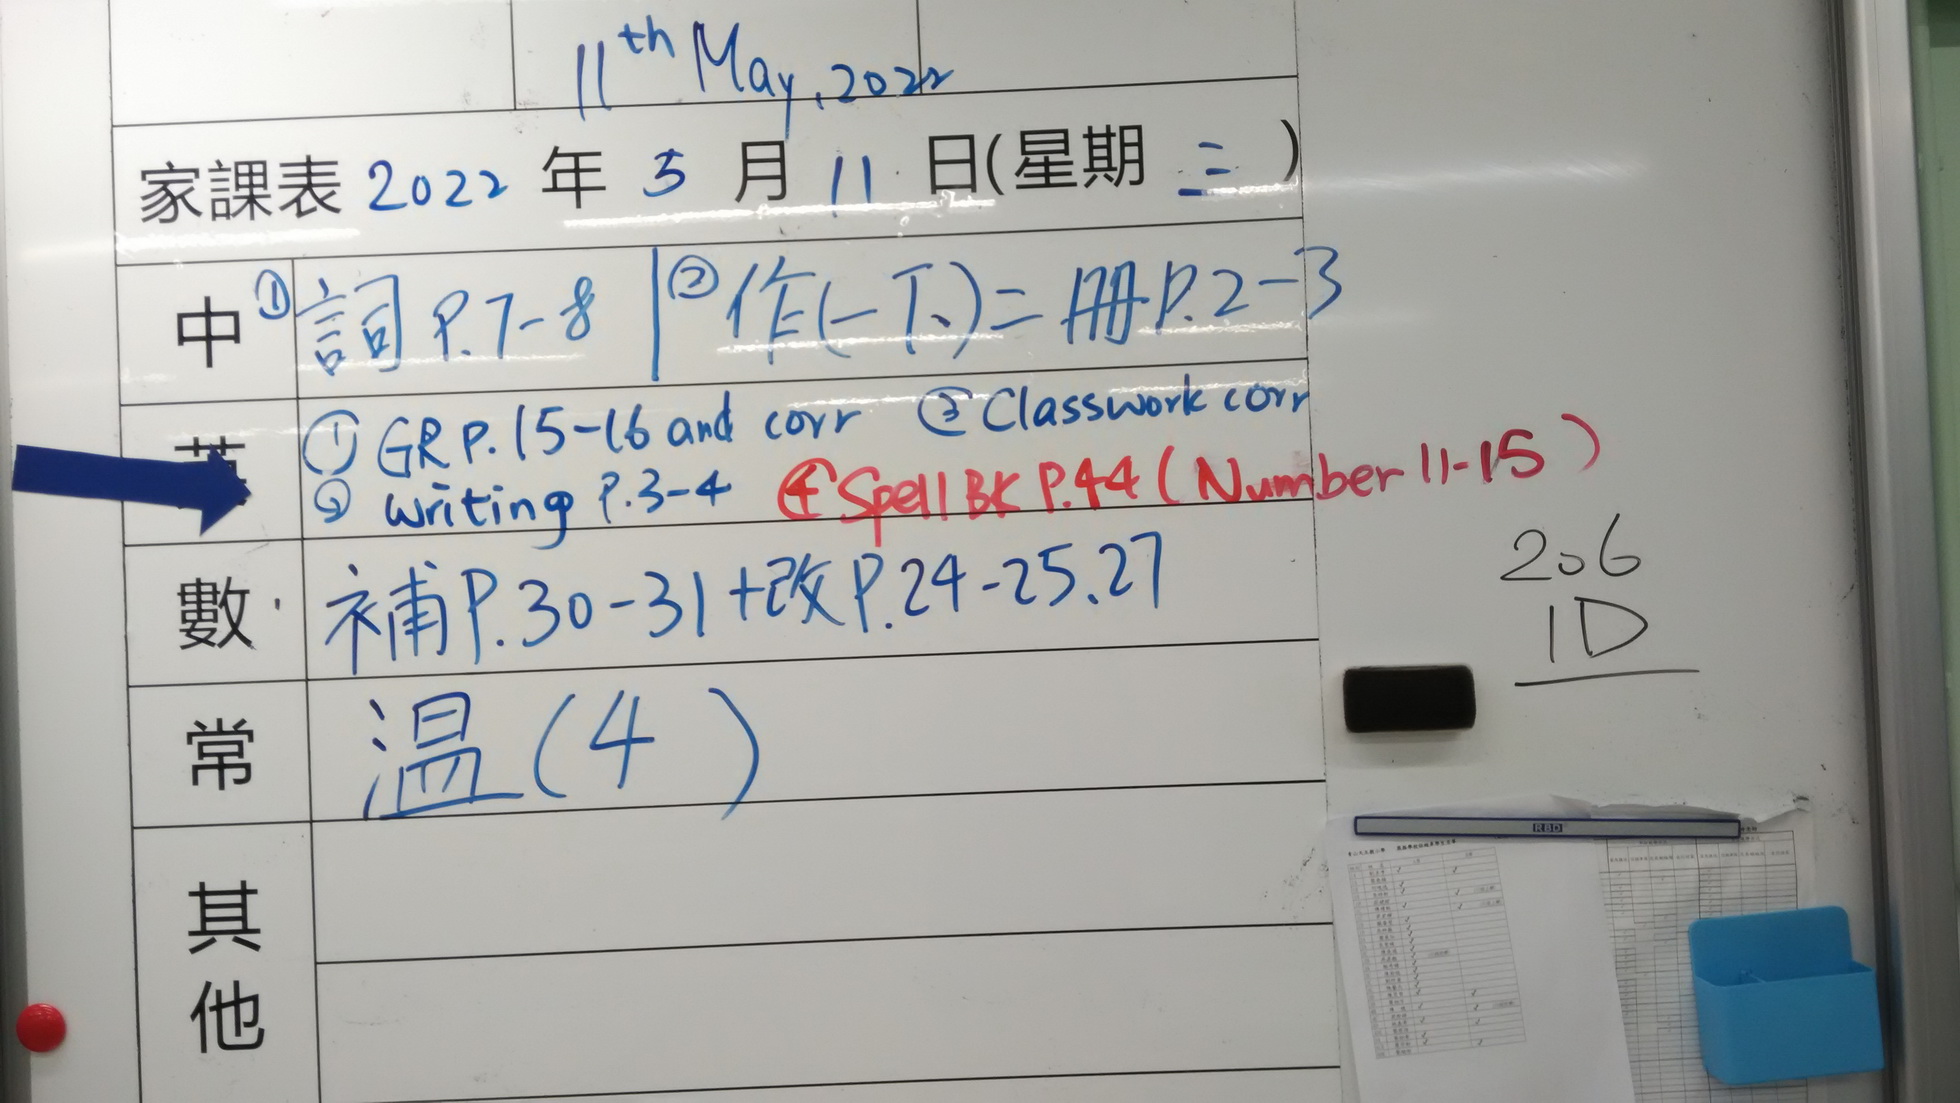 11th May, 2022
家課表 2022 年 5 月 11 日(星期 三 )
中 ① 詞 P.7-8 | ② 作(一下)二冊 P.2-3
① GR P.15-16 and corr ② Classwork corr
③ Writing P.3-4 ④ Spell BK P.44 ( Number 11-15 )
數 補 P.30-31+改 P.24-25.27
常 溫 ( 4 )
其
他
206
1D
RBD